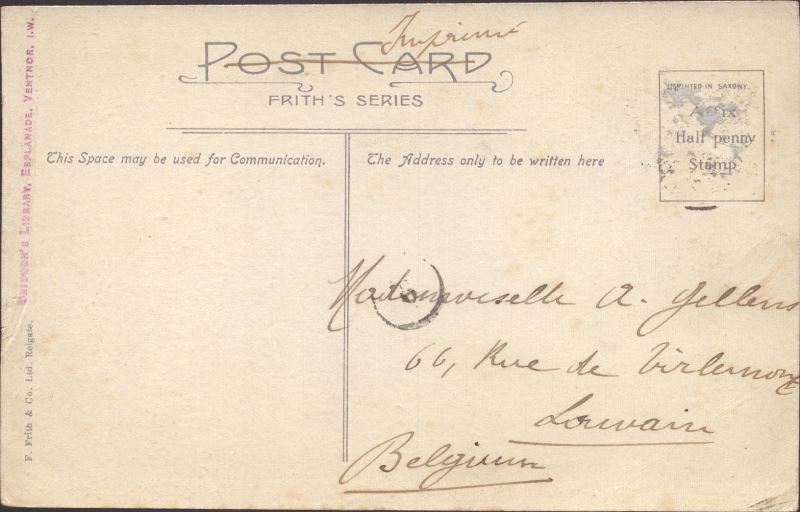 Imprimé
POST CARD
FRITH'S SERIES
This Space may be used for Communication.
The Address only to be written here
PRINTED IN SAXONY.
Affix
Half penny
Stamp
Mademoiselle A. Gellens
66, Rue de Tirlemont
Louvain
Belgium
LIBRARY, ESPLANADE, VENTNOR, I.W.
F. Frith & Co. Ltd. Reigate.